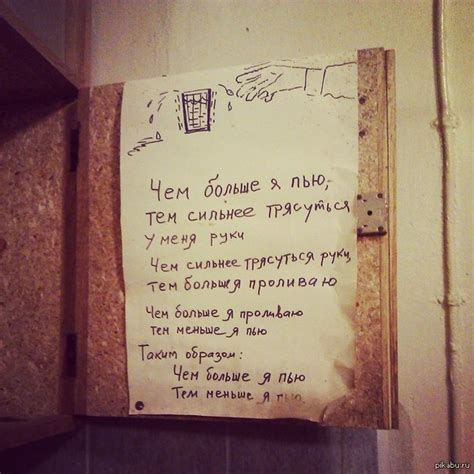 Чем больше я пью,
тем сильнее трясуться
у меня руки
Чем сильнее трясуться руки,
тем больше я проливаю
Чем больше я проливаю
тем меньше я пью
Таким образом:
Чем больше я пью
Тем меньше я пью
pikabu.ru